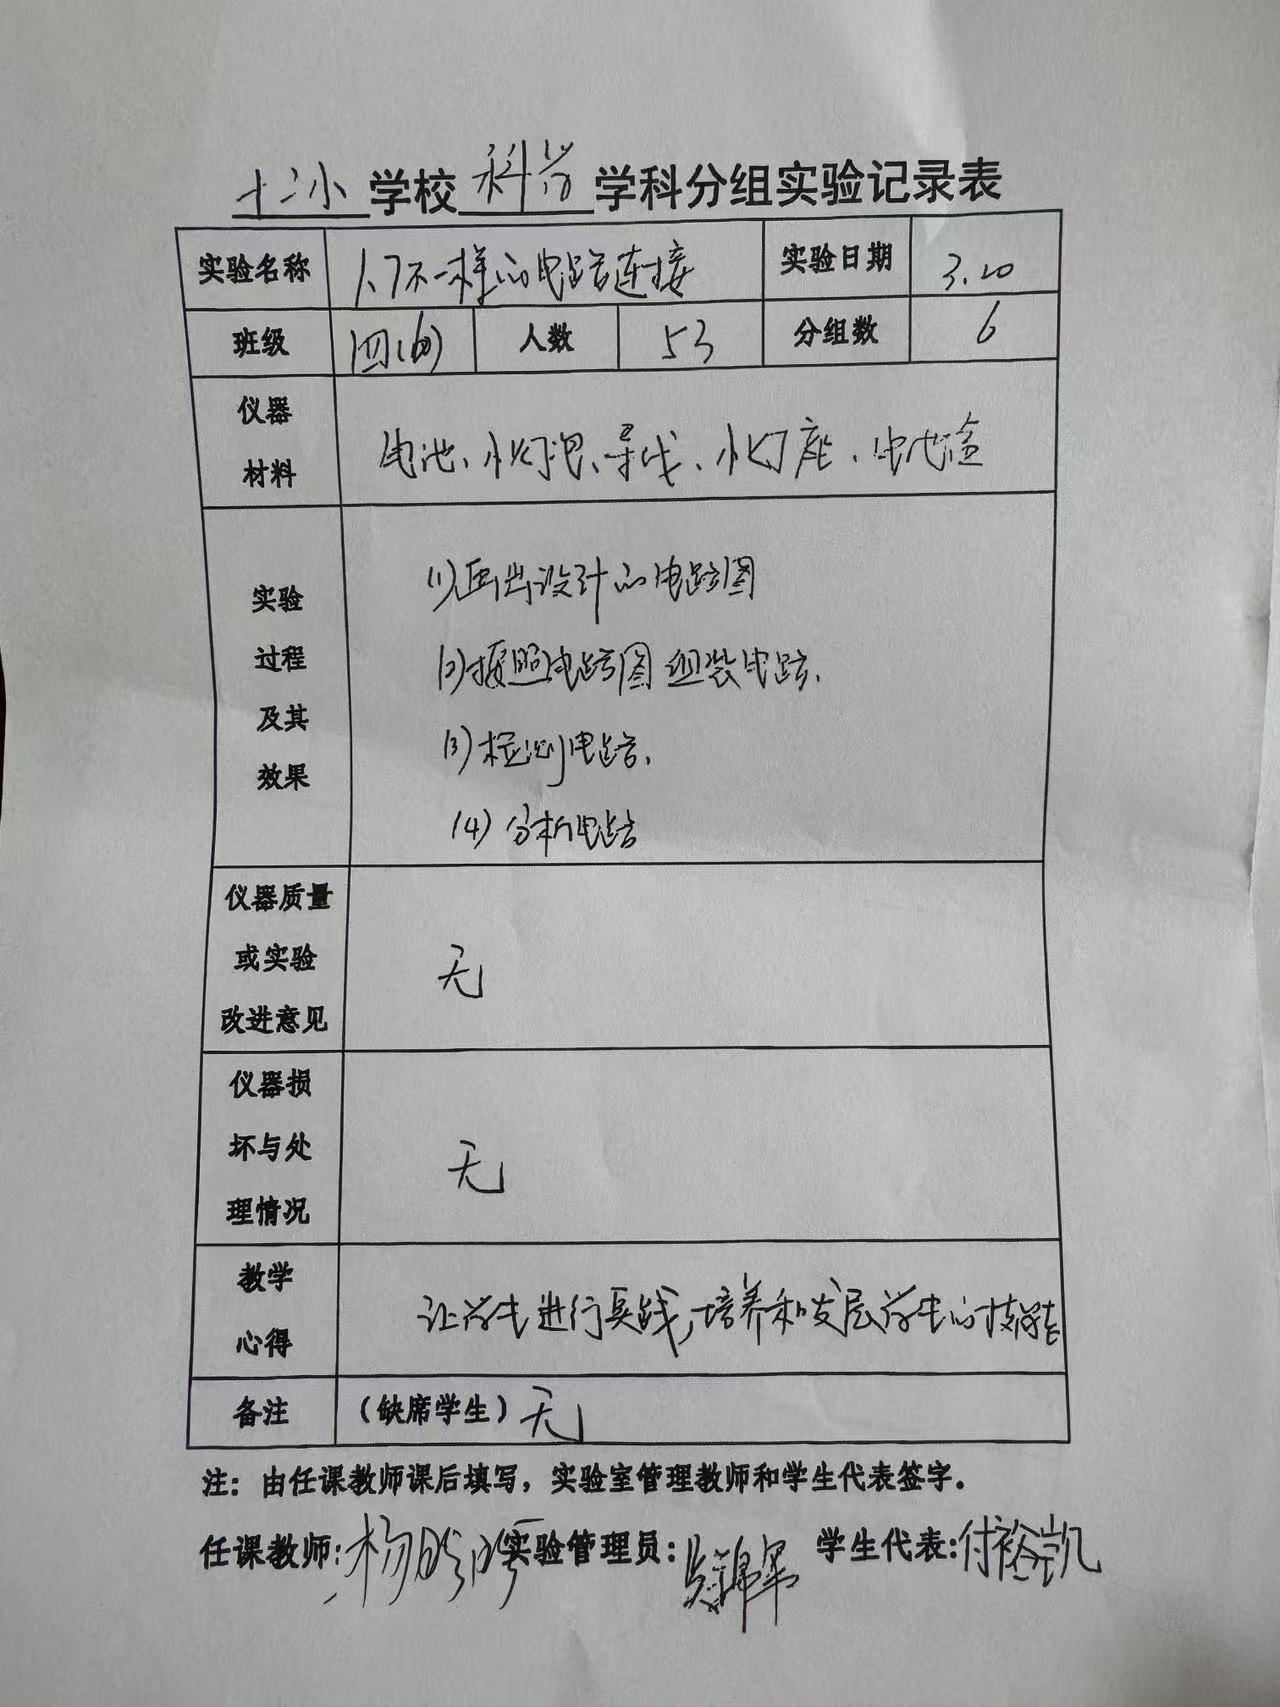 十二小学校科学学科分组实验记录表
实验名称 1.7不一样的电路连接 实验日期 3.20
班级 四(6) 人数 53 分组数 6
仪器
材料
电池、小灯泡、导线、小灯座、电池盒
实验
过程
及其
效果
(1)画出设计的电路图
(2)按照电路图组装电路.
(3)检测电路.
(4)分析电路
仪器质量
或实验
改进意见
无
仪器损
坏与处
理情况
无
教学
心得
让学生进行实践,培养和发展学生的技能
备注 (缺席学生)无
注：由任课教师课后填写，实验室管理教师和学生代表签字。
任课教师:杨 实验管理员: 学生代表:付裕凯